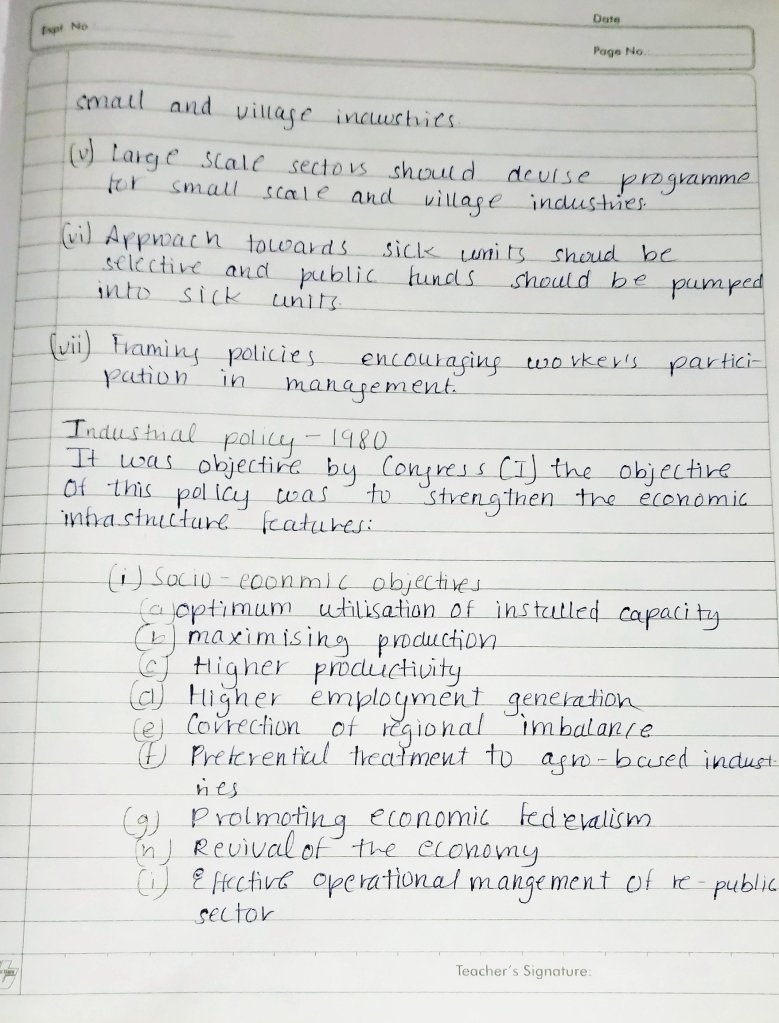 Expt No
Date
Page No.
small and village industries.
(v) Large scale sectors should devise programme
for small scale and village industries.
(vi) Approach towards sick units shoud be
selective and public funds should be pumped
into sick units.
(vii) Framing policies encouraging worker's partici-
pation in management.
Industrial policy - 1980
It was objective by Congress (I) the objective
Of this policy was to strengthen the economic
infrastructure features:
(i) Socio - eoonmic objectives
(a) optimum utilisation of installed capacity
(b) maximising production
(c) Higher productivity
(d) Higher employment generation
(e) Correction of regional imbalance
(f) Preferential treatment to agro-based indust-
ries
(g) Prolmoting economic federalism
(h) Revival of the economy
(i) Effective operational mangement of re-public
sector
Teacher's Signature: